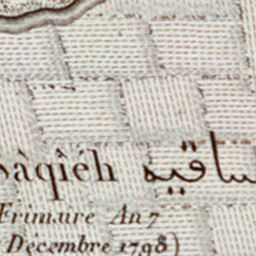 Sàqiéh ساقيه
Frimure An 7
Décembre 1798)